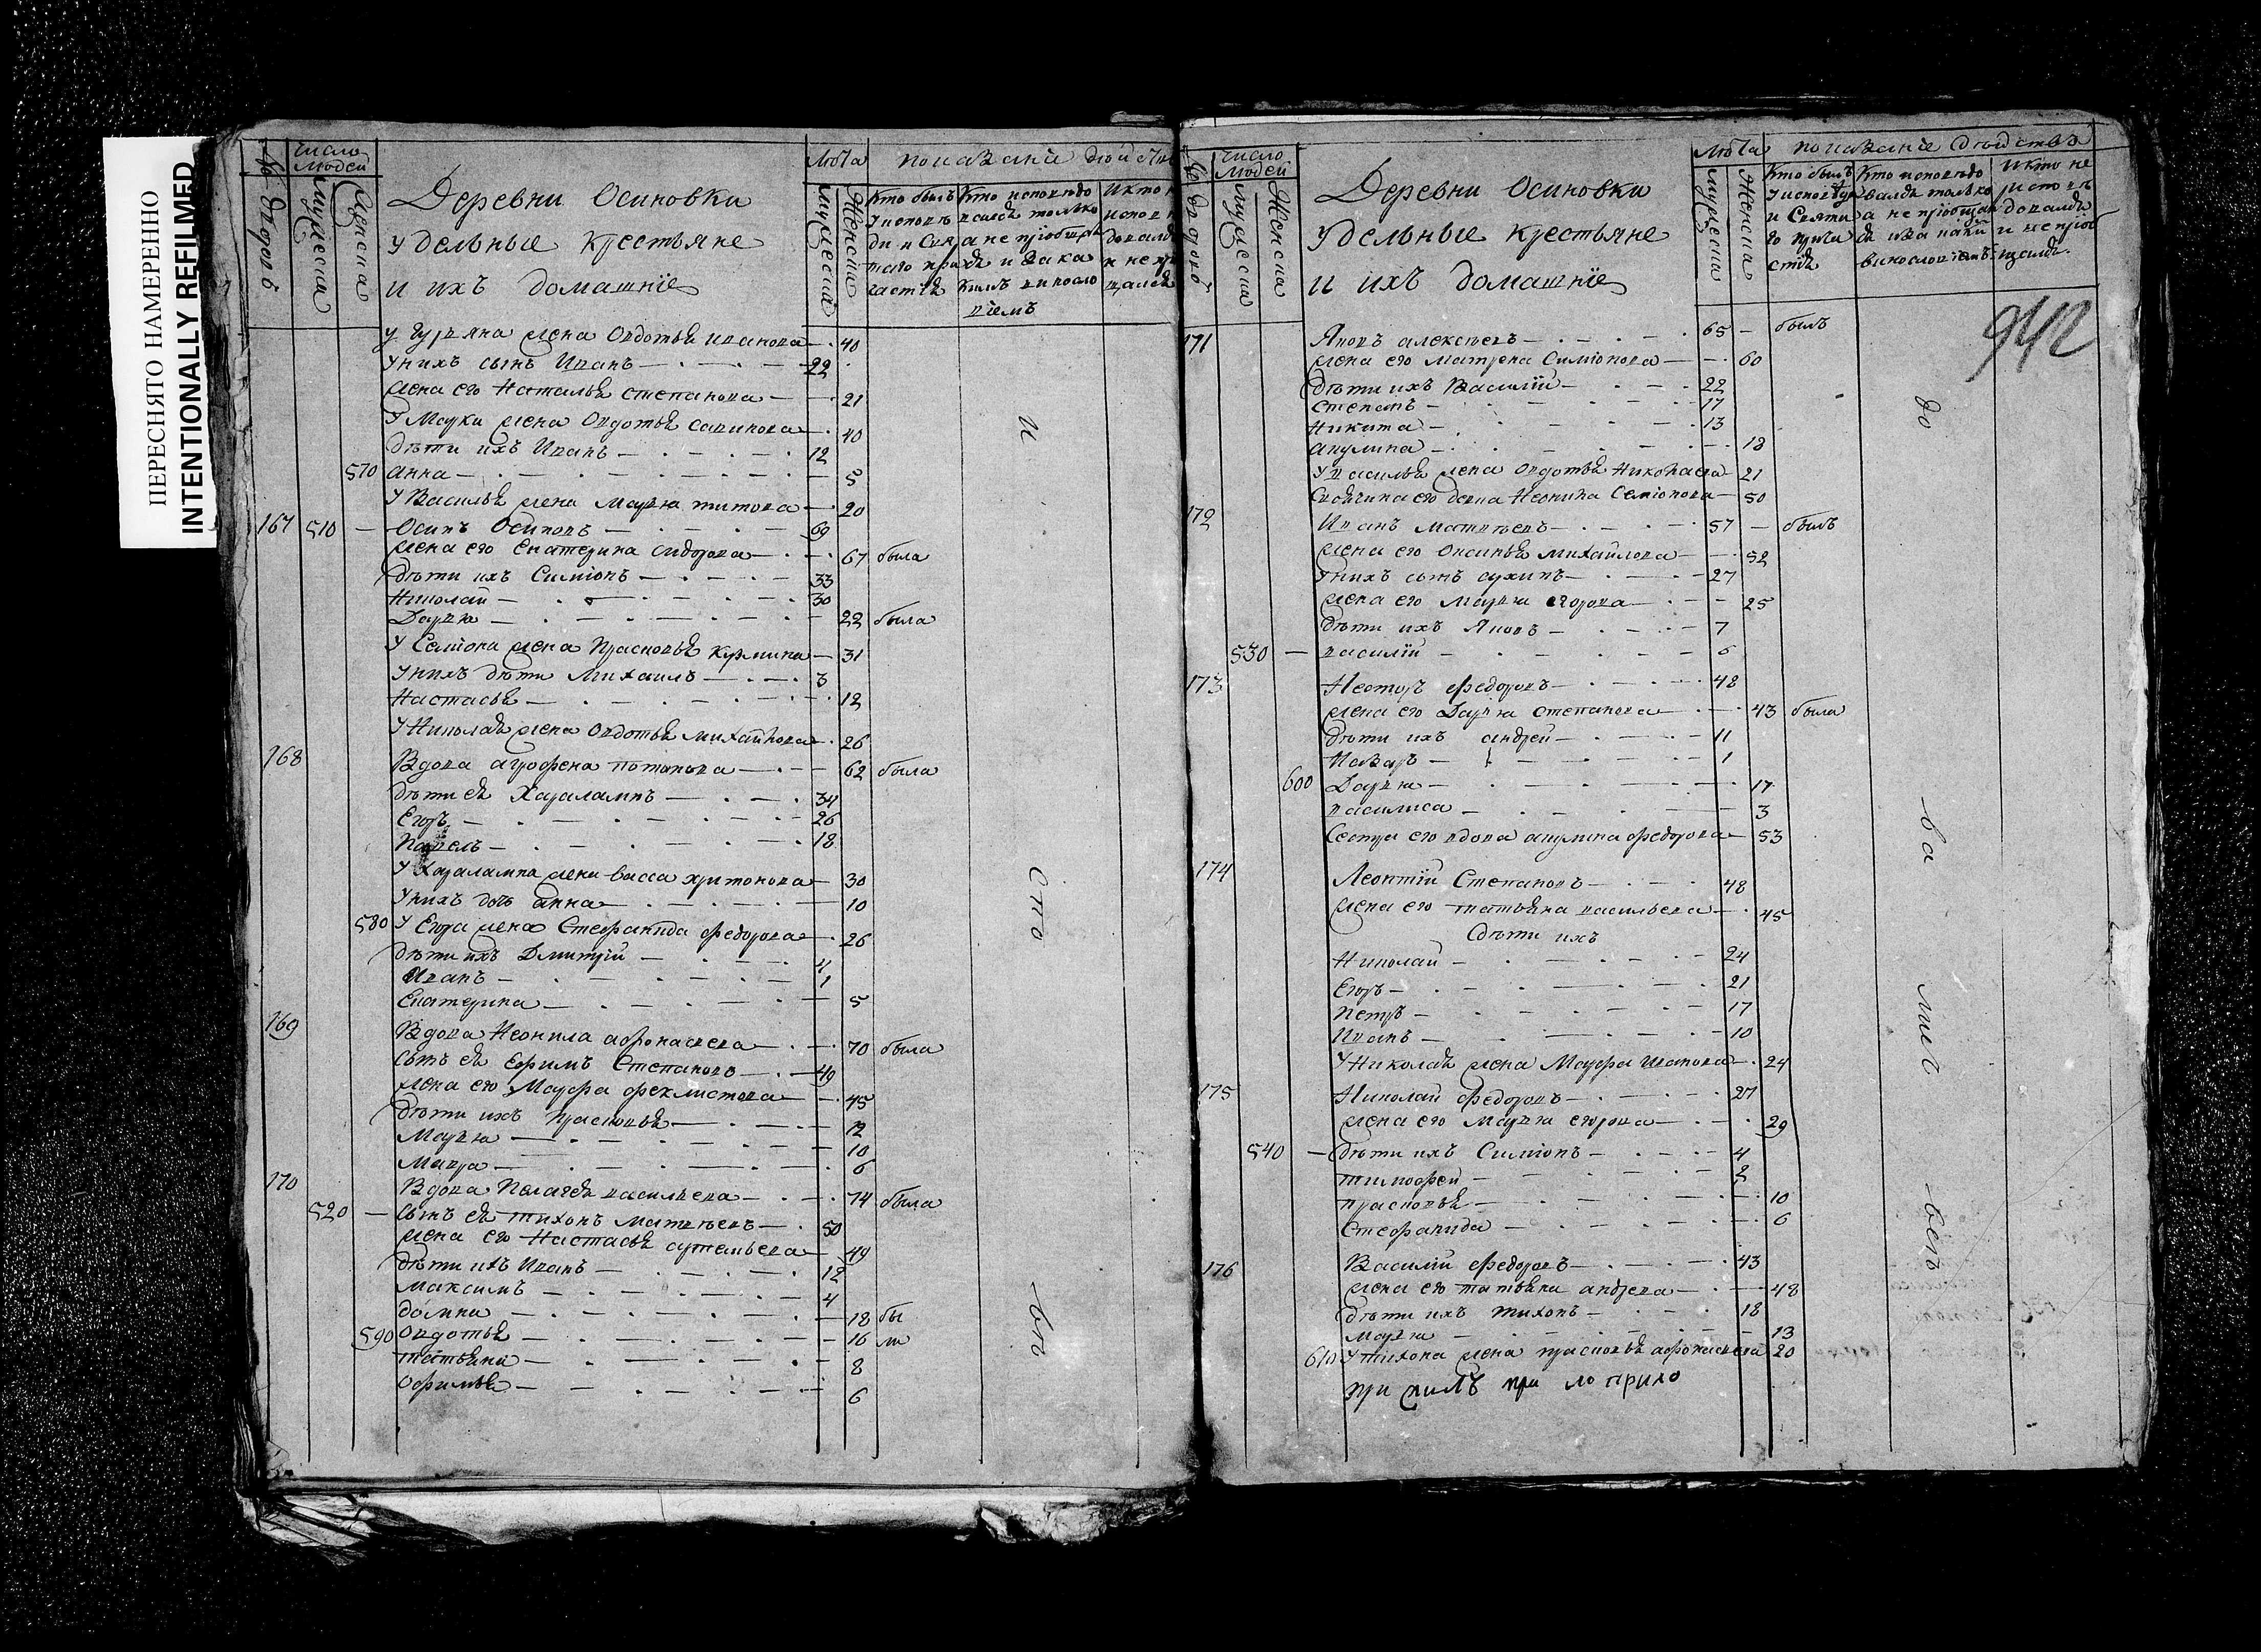 ПЕРЕСНЯТО НАМЕРЕННО
INTENTIONALLY REFILMED
№ дворовъ
Число людей
мужеска
женска
Деревни Осиновки
удельные крестьяне
и ихъ домашніе
Лѣта
мужеска
женска
показаніе дѣйств
кто былъ у исповѣди и Святаго причастія
кто исповѣдовался только а не пріобщался и за какимъ винословіемъ
у гурьяна жена Овдотья иванова — 40
у нихъ сынъ Иванъ — 22
жена его Наталья степанова — 21
У Марки жена Овдотья савинова — 40
дѣти ихъ Иванъ — 12
570 анна — 5
У Василья жена Марья титова — 20
167 510 — Осипъ Осиповъ — 69
жена его Екатерина сидорова — 67 была
дѣти ихъ Симіонъ — 33
Николай — 30
Дарья — 22 была
У Семіона жена Прасковья кузмина — 31
у нихъ дѣти Михаилъ — 3
Настасья — 12
У Николая жена Овдотья михайлова — 26
168 Вдова агрофена потапова — 62 была
дѣти ея Харалампъ — 34
Егоръ — 26
Павелъ — 18
У Харалампа жена васса харитонова — 30
у нихъ дочь анна — 10
580 У Егора жена Стефанида федорова — 26
дѣти ихъ Дмитрій — 4
Иванъ — 1
Екатерина — 5
169 Вдова Неонила афонасьева — 70 была
сынъ ея Ефимъ Степановъ — 49
жена его Марфа феклистова — 45
дѣти ихъ Прасковья — 12
Марья — 10
Мавра — 6
170 Вдова Пелагея васильева — 74 была
520 — сынъ ея тихонъ матвѣевъ — 50
жена его Настасья артемьева — 49
дѣти ихъ Иванъ — 12
максимъ — 4
домна — 18 бы
590 Овдотья — 16 ли
татьяна — 8
Офимья — 6
и
сто
вѣ
№ дворовъ
Число людей
мужеска
Женска
Деревни Осиновки
Удельные крестьяне
и ихъ домашніе
Лѣта
мужеска
Женска
показаніе дѣйства
942
171 Яковъ алексѣевъ — 65 — былъ
жена его матрена Симіонова — 60
дѣти ихъ Василій — 22
степанъ — 17
никита — 13
акулина — 18
У василья жена овдотья Николаева — 21
Своячина его девка Неонила Семіонова — 50
172 Иванъ матвѣевъ — 57 — былъ
жена его Оксинья михайлова — 52
у нихъ сынъ архипъ — 27
жена его марья егорова — 25
дѣти ихъ Яковъ — 7
530 — василій — 6
173 Несторъ федоровъ — 48
жена его Дарья степанова — 43 была
дѣти ихъ андрей — 11
Назаръ — 1
600 Дарья — 17
василиса — 3
Сестра его вдова акулина федорова — 53
174 Леонтій Степановъ — 48
жена его татьяна васильева — 45
дѣти ихъ
Николай — 24
Егоръ — 21
Петръ — 17
Иванъ — 10
У Николая жена Марфа Иванова — 24
175 Николай федоровъ — 27
жена его марья егорова — 29
540 — дѣти ихъ Симіонъ — 4
тимофей — 2
прасковья — 10
Стефанида — 6
176 Василій федоровъ — 43
жена его татьяна андрева — 48
дѣти ихъ тихонъ — 18
марья — 13
610 У тихона жена прасковья афонасьева 20
до
ва
мис
весъ